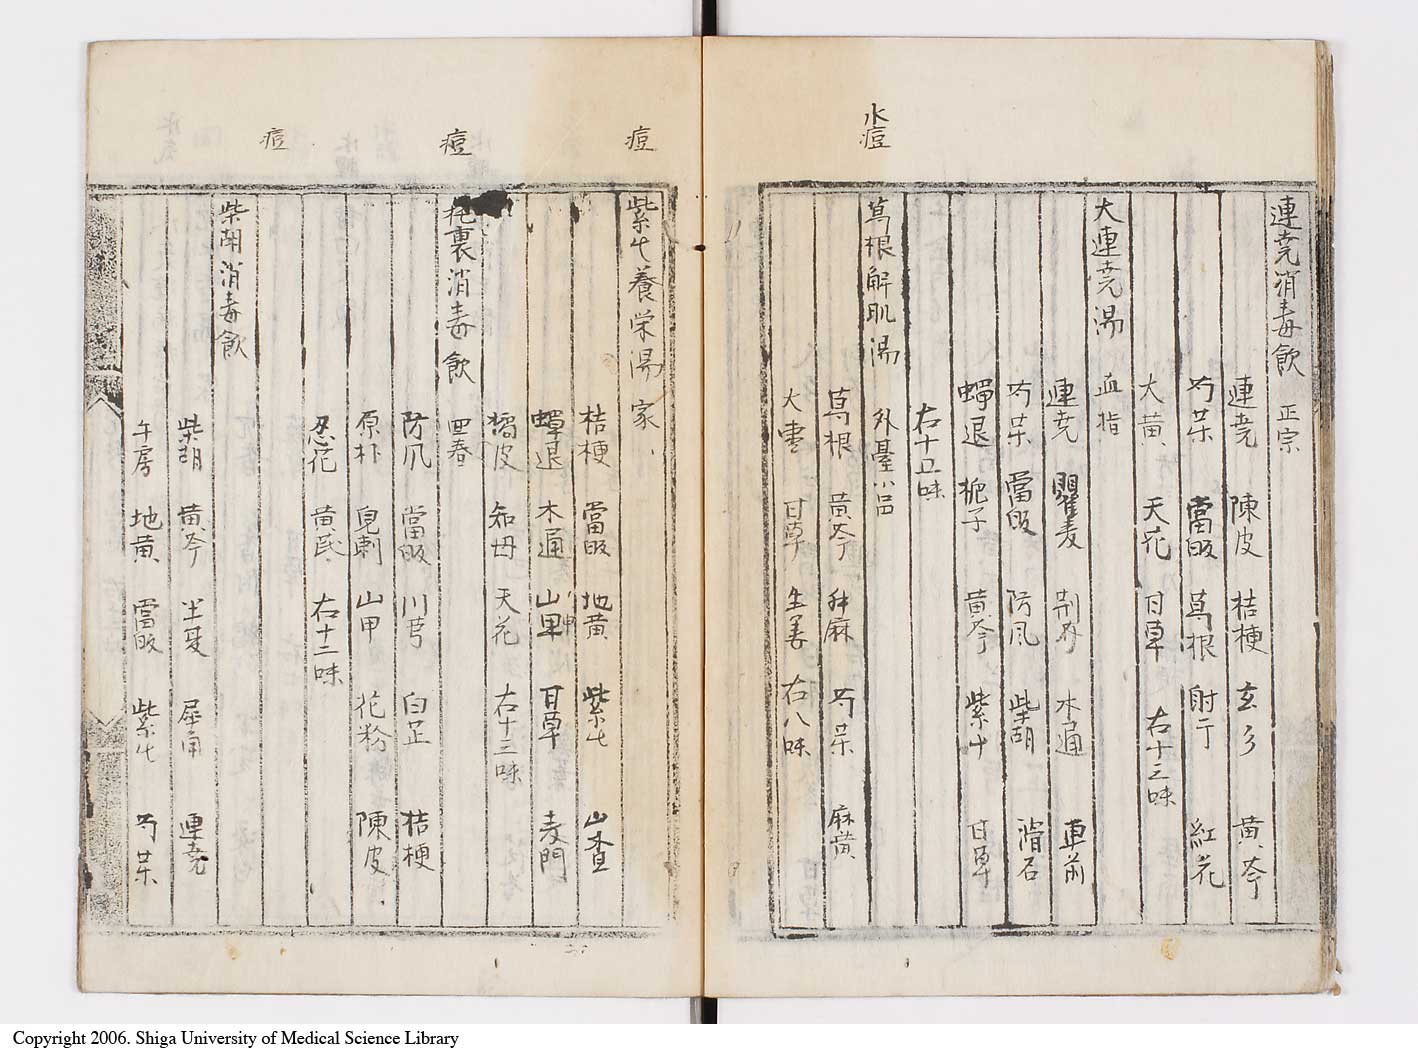 連尭消毒飲 正宗
連尭 陳皮 桔梗 玄参 黄芩
芍薬 當皈 葛根 射干 紅花
大黄 天花 甘草 右十三味
大連尭湯 血指
連尭 瞿麦 荆芥 木通 車前
芍薬 當皈 防風 柴胡 滑石
蟬退 梔子 黄芩 紫草 甘草
右十五味
水痘
葛根解肌湯 外臺
葛根 黄芩 升麻 芍薬 麻黄
大枣 甘草 生姜 右八味
痘
紫草養栄湯 家
桔梗 當皈 地黄 紫草 山査
蟬退 木通 甘草 麦門
橘皮 知母 天花 右十三味
痘
托裏消毒飲 回春
防風 當皈 川芎 白芷 桔梗
厚朴 皂刺 山甲 花粉 陳皮
忍花 黄芪 右十二味
痘
柴胡消毒飲
柴胡 黄芩 犀角 連尭
牛房 地黄 當皈 紫草 芍薬
Copyright 2006. Shiga University of Medical Science Library